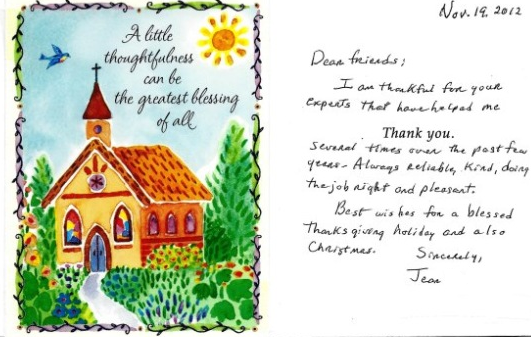 A little
thoughtfulness
can be
the greatest blessing
of all
Nov. 19, 2012
Dear friends;
I am thankful for your
experts that have helped me
Thank you.
several times over the past few
years - Always reliable, kind, doing
the job right and pleasant.
Best wishes for a blessed
Thanksgiving holiday and also
Christmas.
Sincerely,
Jean